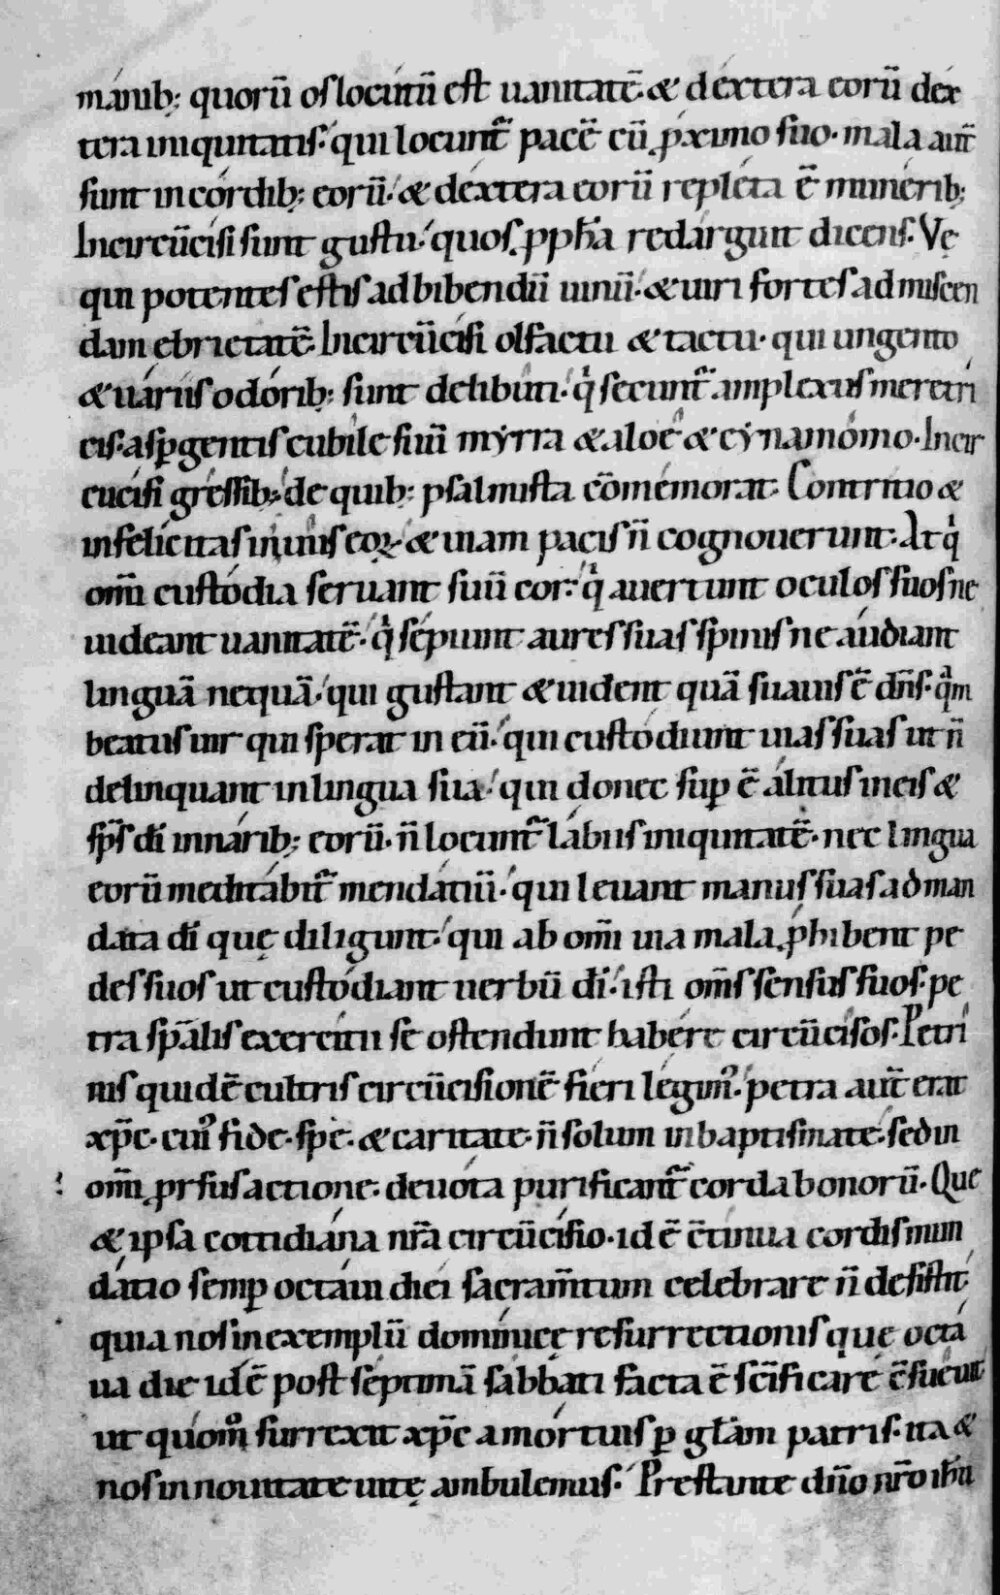 manib; quorū os locutū est uanitatē. & dextera eorū dex
tera iniquitatis. qui locunt̄ pacē cū ꝓximo suo. mala aut̄
sunt in cordib; eorū. & dextera eorū repleta ē munerib;
Incircūcisi sunt gustu. quos ꝓph̄a redargunt dicens. Vę
qui potentes estis ad bibendū uinū. & uiri fortes ad miscen
dam ebrietatē. Incircūcisi olfactu & tactu. qui ungento
& uariis odorib; sunt delibuti. qͥ secunt̄ amplexus meretri
cis. asꝑgentis cubile suū myrra & aloe & cynamomo. Incir
cucisi gressib; de quib; psalmista cōmemorat. Contritio &
infelicitas in uiis eoꝝ. & uiam pacis n̄ cognouerunt. At qͥ
om̄i custodia seruant suū cor. qͥ auertunt oculos suos ne
uideant uanitatē. qͥ sepiunt aures suas spinis ne audiant
linguā nequā. qui gustant & uident quā suauis ē dn̄s. qm̄
beatus uir qui sperat in eū. qui custodiunt uias suas ut n̄
delinquant in lingua sua. qui donec suꝑ ē alitus in eis &
sp̄s dī in narib; eorū. n̄ locunt̄ labiis iniquitatē. nec lingua
eorū meditabit̄ mendatiū. qui leuant manus suas ad man
data dī quę diligunt. qui ab om̄i uia mala ꝓhibent pe
des suos ut custodiant uerbū dī. isti om̄s sensus suos. pe
tra sp̄alis exercitii se ostendunt habere circūcisos. Petri
nis quidē cultris circūcisionē fieri legimꝰ. petra aut̄ erat
xp̄c. cuiꝰ fide. spe. & caritate. n̄ solum in baptismate. sed in
om̄i prsus actione. deuota purificant̄ corda bonorū. Que
& ipsa cottidiana nr̄a circūcisio. id ē c̄tinua cordis mun
datio semꝑ octaui diei sacram̄tum celebrare n̄ desistit.
quia nos in exemplū dominicę resurrectionis quę octa
ua die id ē post septimā sabbati facta ē sc̄ificare
ut quom̊ surrexit xp̄c a mortuis ꝑ gl̄am patris. ita &
nos in nouitate uitę ambulemus. Prestante dn̄o nr̄o ih̄u